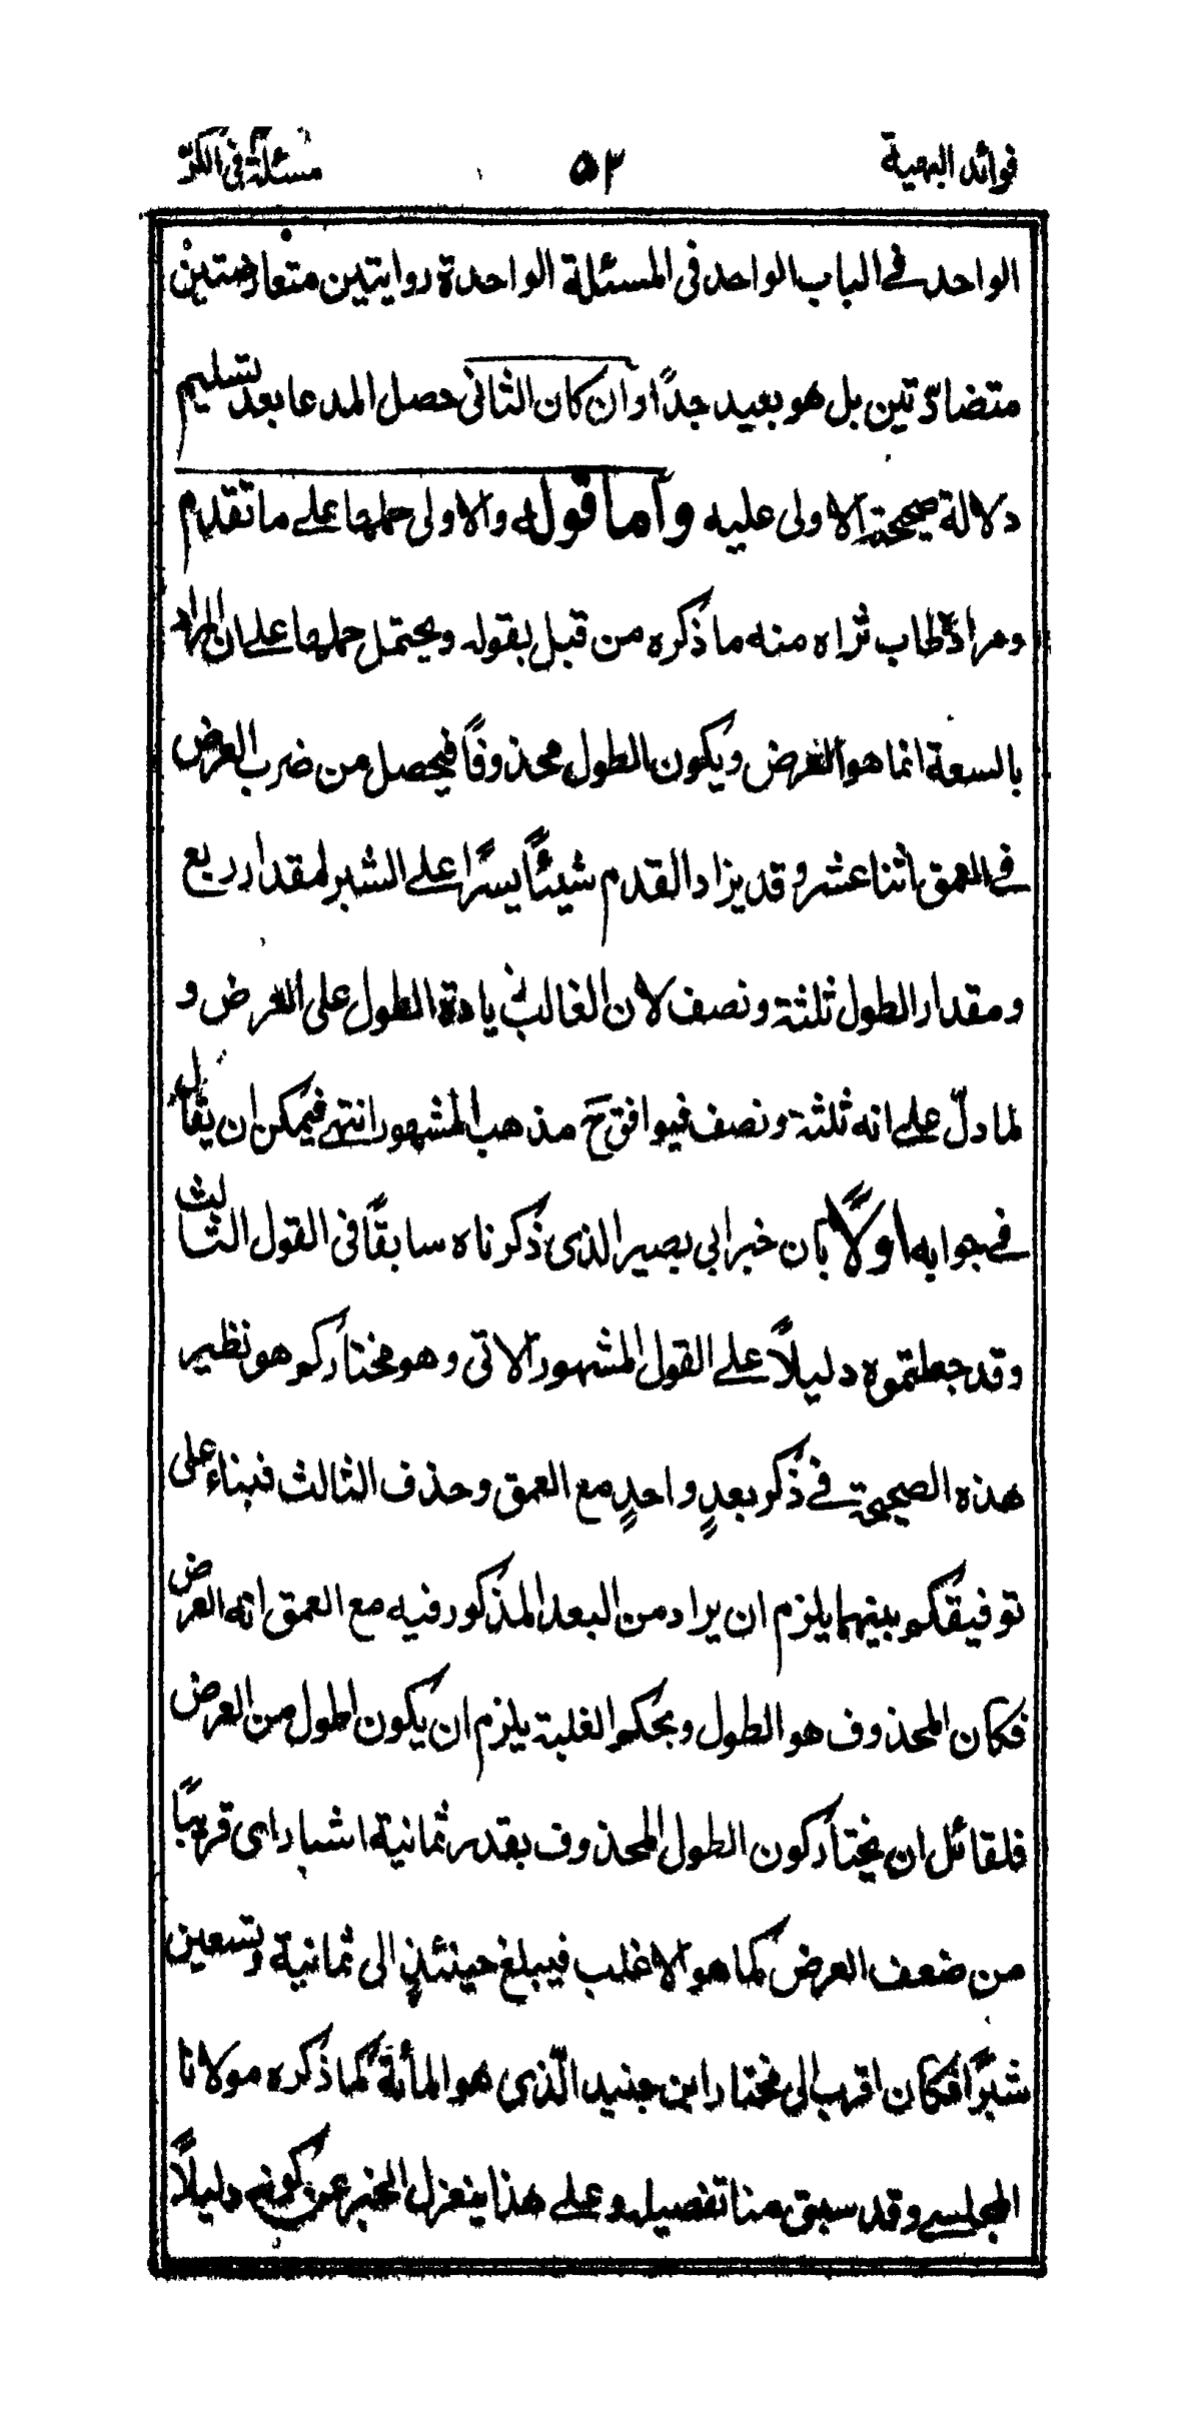 فوائد البهية ۵۲ مسئلة فى الكرّ
الواحد فے الباب الواحد فى المسئلة الواحدة روايتين متعارضتين
متضادّتين بل هو بعيد جدًا وان كان الثانى حصل المدعا بعد تسليم
دلالة صحيحة الاولى عليه واما قوله والاولى حملها علے ما تقدم
ومراده طاب ثراه منه ما ذكره من قبل بقوله ويحتمل حملها علے ان المراد
بالسعة انما هو العرض ويكون الطول محذوفًا فيحصل من ضرب العرض
فے العمق اثنا عشر وقد يزاد القدم شيئًا يسرًا علے الشبر لمقدار ربع
ومقدار الطول ثلثة ونصف لان الغالب زيادة الطول على العرض و
لما دلّ علے انه ثلثة ونصف فيوافق ح مذهب المشهور انتهے فيمكن ان يقال
فے جوابه اولًا بان خبر ابي بصير الذى ذكرناه سابقًا فى القول الثالث
وقد جعلتموه دليلًا علے القول المشهور الاتى وهو مختاركم هو نظير
هذه الصحيحة فے ذكر بعدٍ واحدٍ مع العمق وحذف الثالث فبناء على
توفيقكم بينهما يلزم ان يراد من البعد المذكور فيه مع العمق انه العرض
فكان المحذوف هو الطول وبحكم الغلبة يلزم ان يكون اطول من العرض
فلقائل ان يختار كون الطول المحذوف بقدر ثمانية اشبار اى قريبًا
من ضعف العرض كما هو الاغلب فيبلغ حينئذٍ الى ثمانية وتسعين
شبرًا فكان اقرب الى مختار ابن جنيد الّذى هو المأئة كما ذكره مولانا
المجلسے وقد سبق منا تفصيله وعلے هذا ينعزل الخبر عن كونه دليلًا